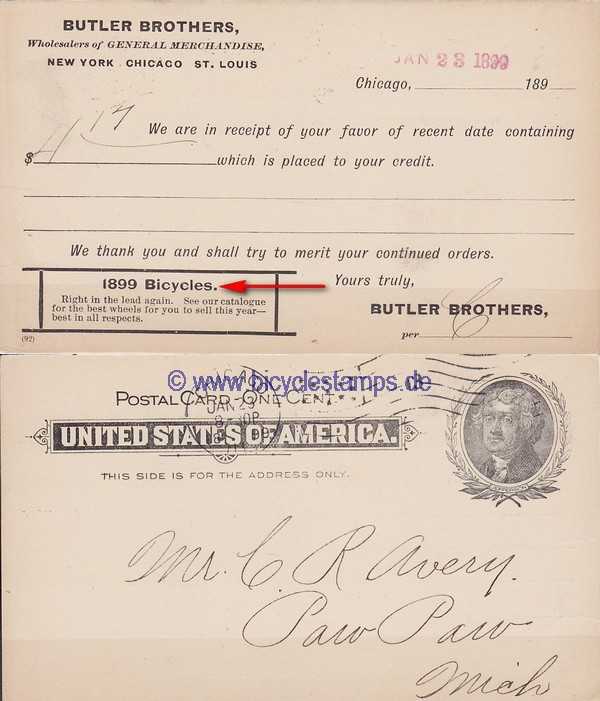 BUTLER BROTHERS,
Wholesalers of GENERAL MERCHANDISE,
NEW YORK CHICAGO ST. LOUIS
JAN 23 1899
Chicago, 189
We are in receipt of your favor of recent date containing
$4 17 which is placed to your credit.
We thank you and shall try to merit your continued orders.
1899 Bicycles.
Right in the lead again. See our catalogue
for the best wheels for you to sell this year—
best in all respects.
(92)
Yours truly,
BUTLER BROTHERS,
per C
© www.bicyclestamps.de
POSTAL CARD - ONE CENT.
JAN 23
UNITED STATES OF AMERICA.
THIS SIDE IS FOR THE ADDRESS ONLY.
JEFFERSON
Mr. C. R. Avery.
Paw Paw
Mich